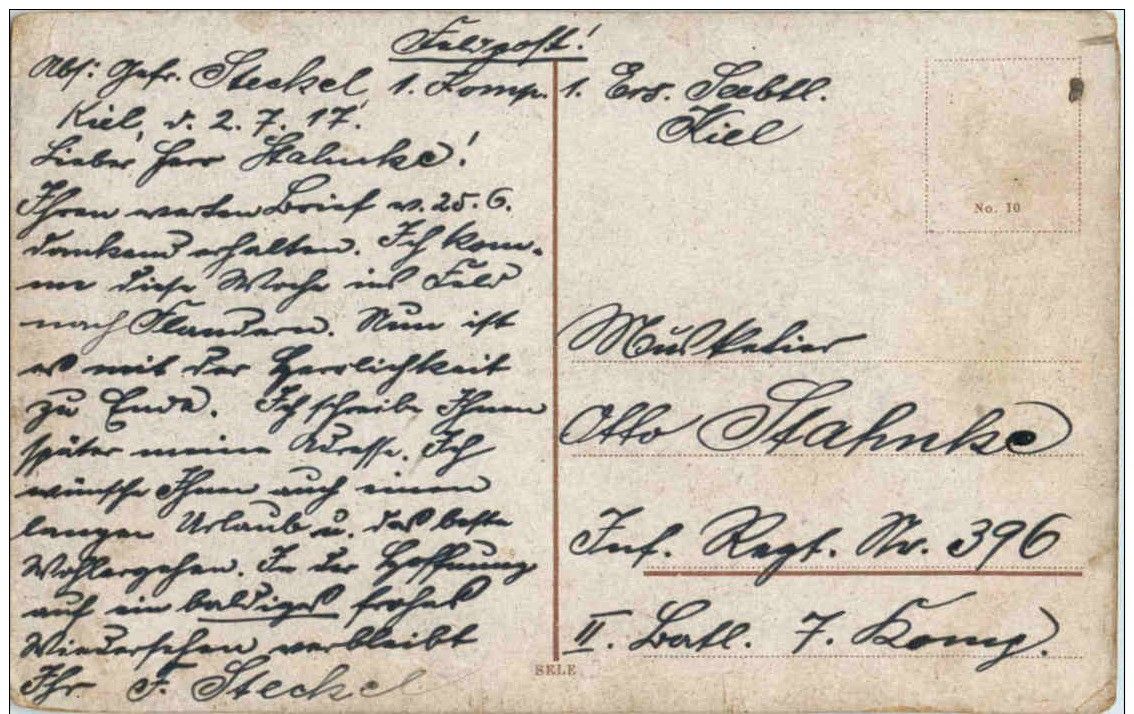 Feldpost!
Abs: Gefr. Steckel 1. Komp. 1. Ers. Seebtl.
Kiel
Kiel, d. 2. 7. 17.
Lieber Herr Stahnke!
Ihren werten Brief v. 25.6.
dankend erhalten. Ich kom-
me diese Woche ins Feld
nach Flandern. Nun ist
es mit der Herrlichkeit
zu Ende. Ich schreibe Ihnen
später meine Adresse. Ich
wünsche Ihnen auch einen
langen Urlaub u. das beste
Wohlergehen. In der Hoffnung
auf ein baldiges frohes
Wiedersehen verbleibt
Ihr F. Steckel
No. 10
Musketier
Otto Stahnke
Inf. Regt. Nr. 396
II. Batl. 7. Komp.
SELE